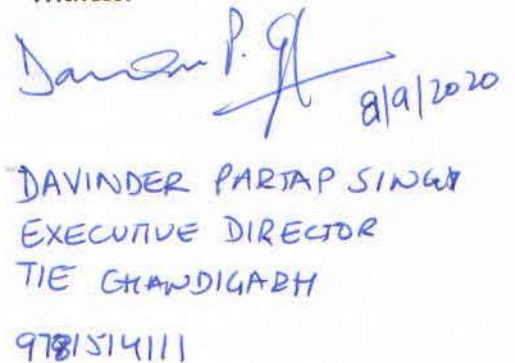 8/9/2020
DAVINDER PARTAP SINGH
EXECUTIVE DIRECTOR
TIE CHANDIGARH
9781514111